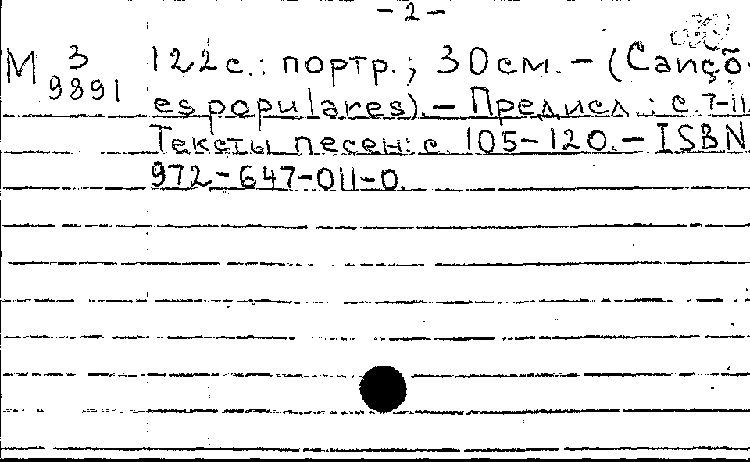 - 2 -
М 3 122 с.: портр.; 30 см. - (Cançõ-
9891 es populares). - Предисл.: с. 7-11.
Тексты песен: с. 105-120. - ISBN
972-647-011-0.